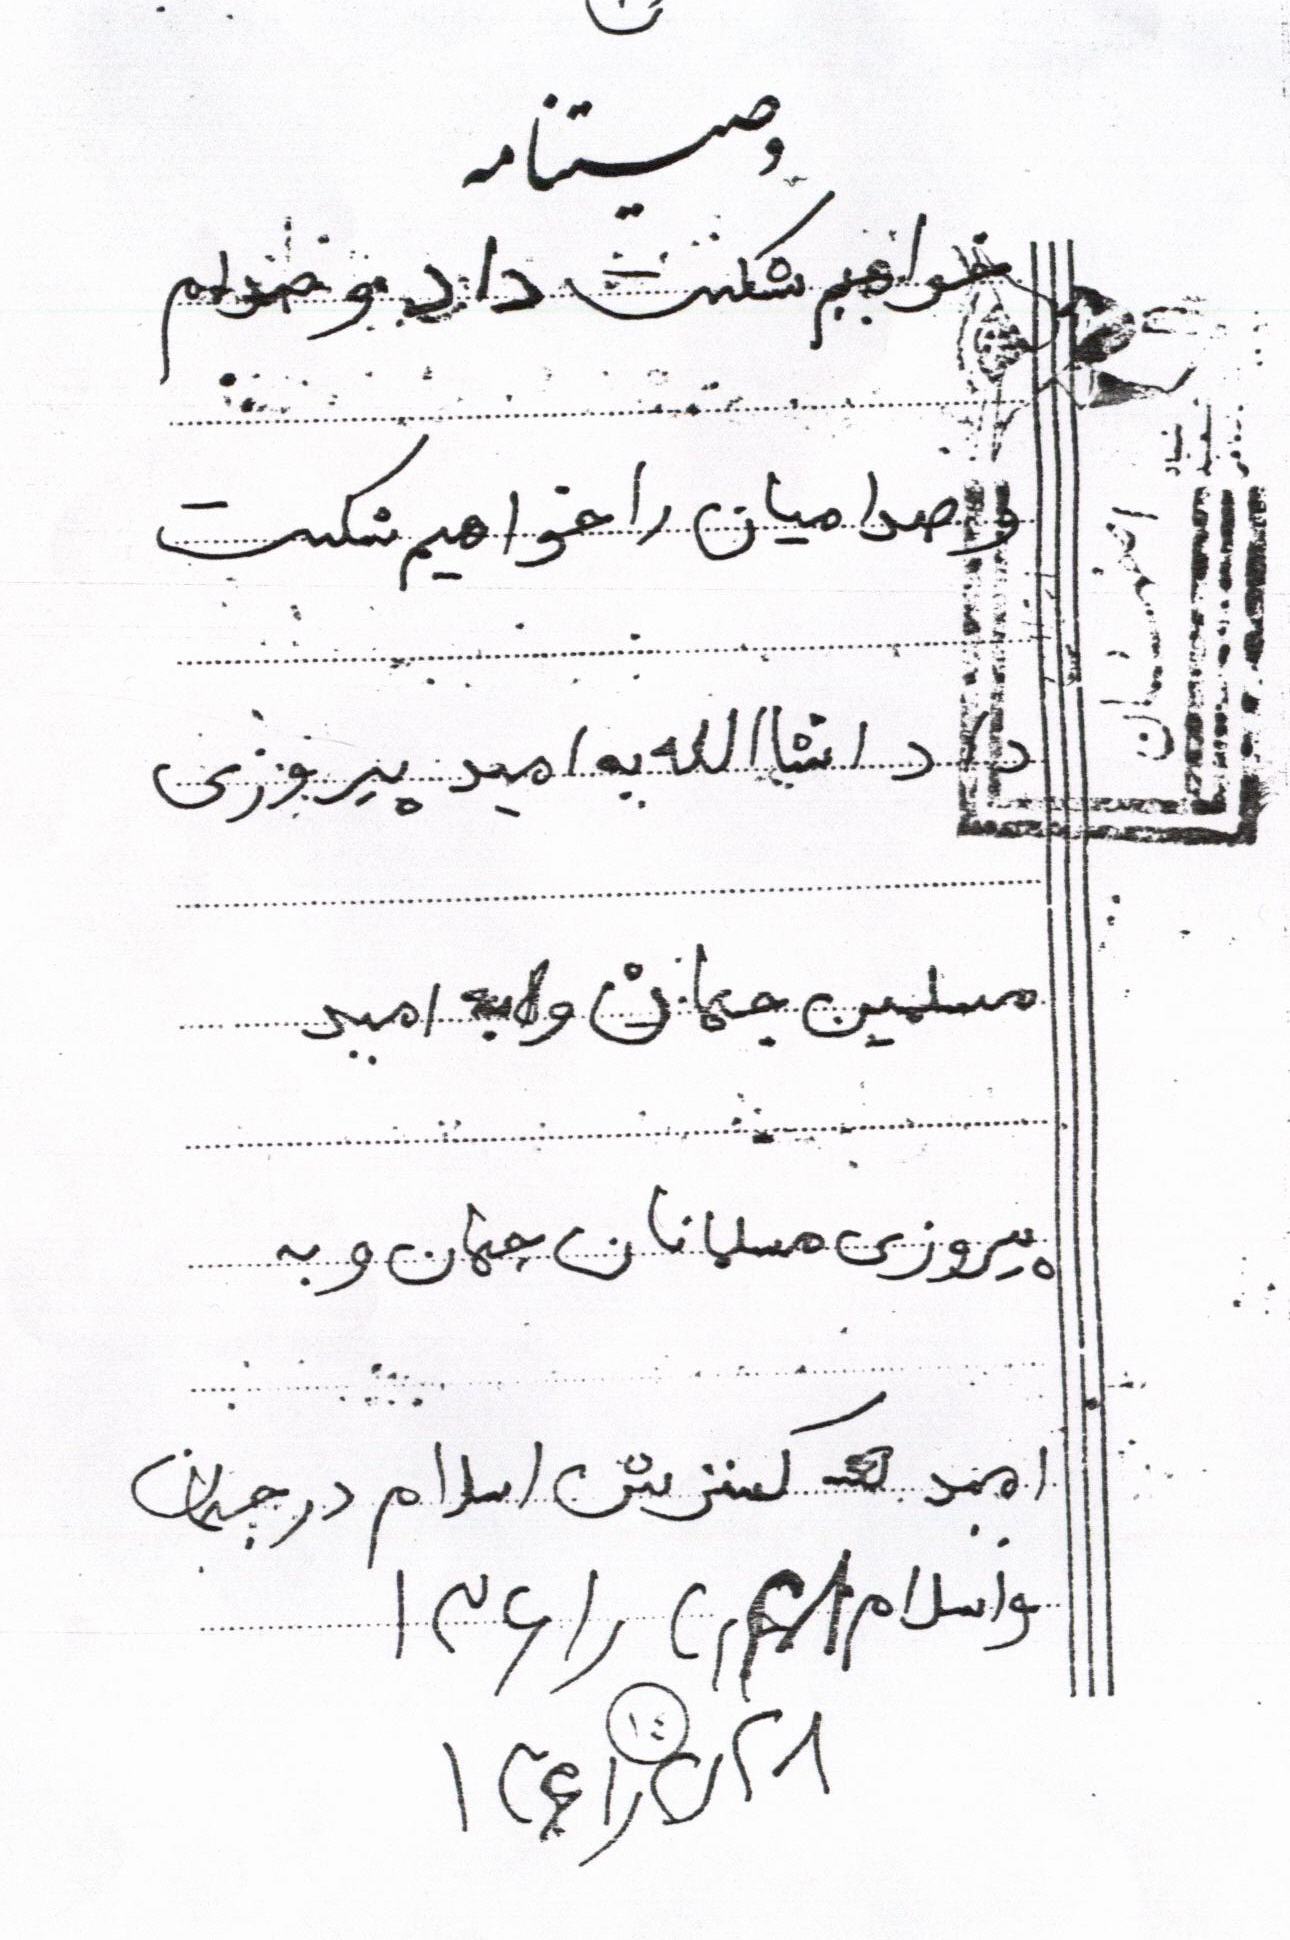 وصیتنامه
خواهیم شکست داد و صدام
و صدامیان را خواهیم شکست
داد انشاالله به امید پیروزی
مسلمین جهان و به امید
پیروزی مسلمانان جهان و به
امید گسترش اسلام در جهان
واسلام
۱۴